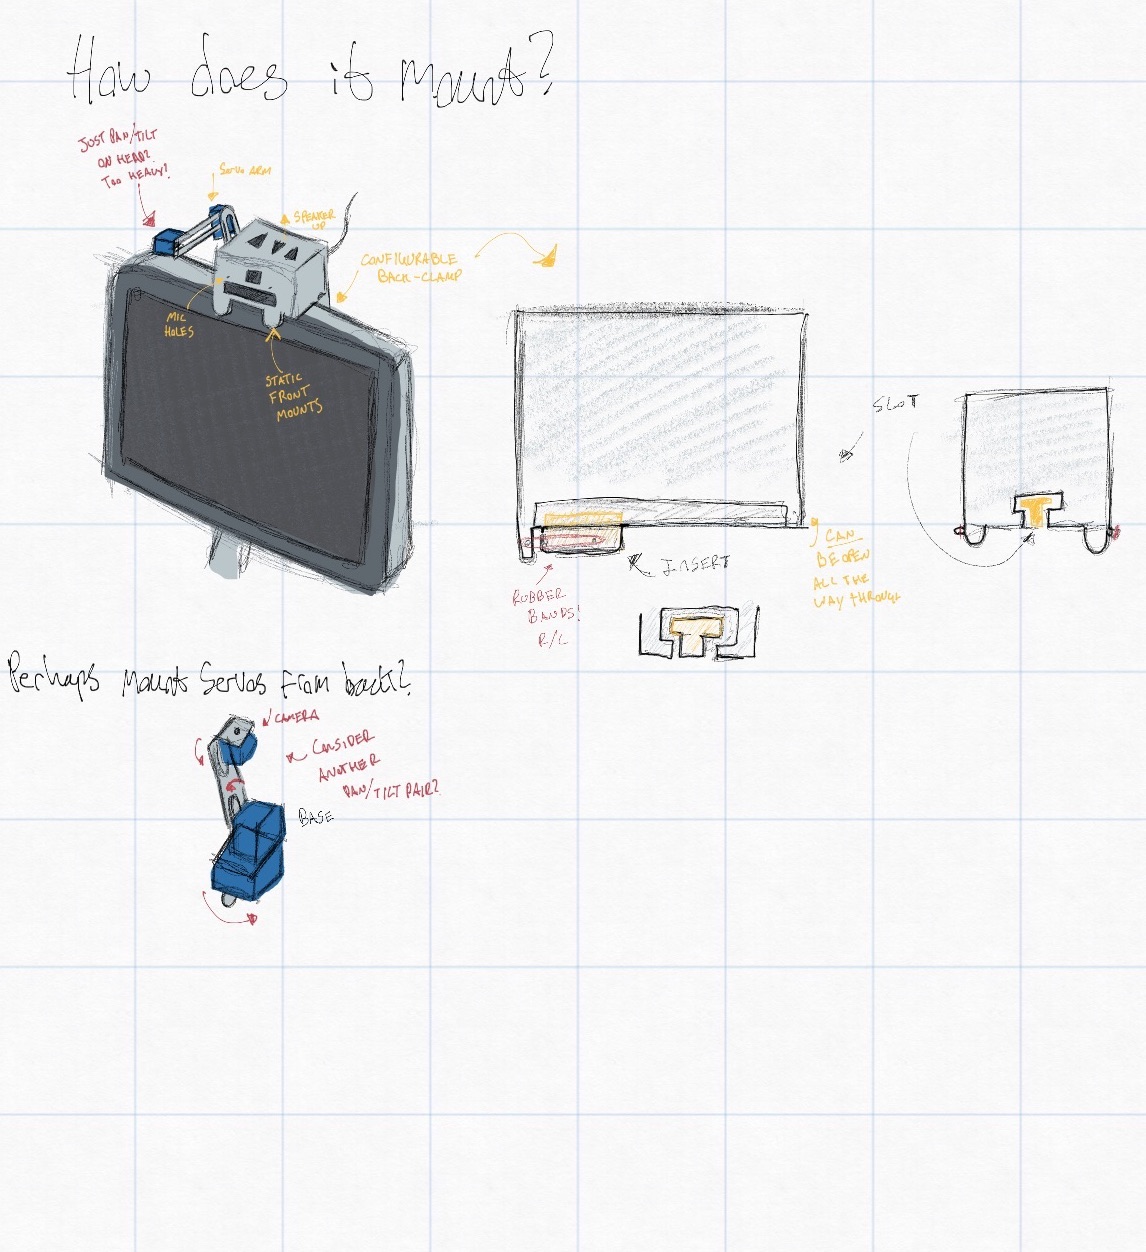 How does it mount?
JUST PAN/TILT
ON HEAD?
TOO HEAVY?
SERVO ARM
SPEAKER
UP
CONFIGURABLE
BACK-CLAMP
MIC
HOLES
STATIC
FRONT
MOUNTS
SLOT
CAN
BE OPEN
ALL THE
WAY THROUGH
INSERT
RUBBER
BANDS!
R/L
Perhaps mount Servos from back?
CAMERA
CONSIDER
ANOTHER
PAN/TILT PAIR?
BASE